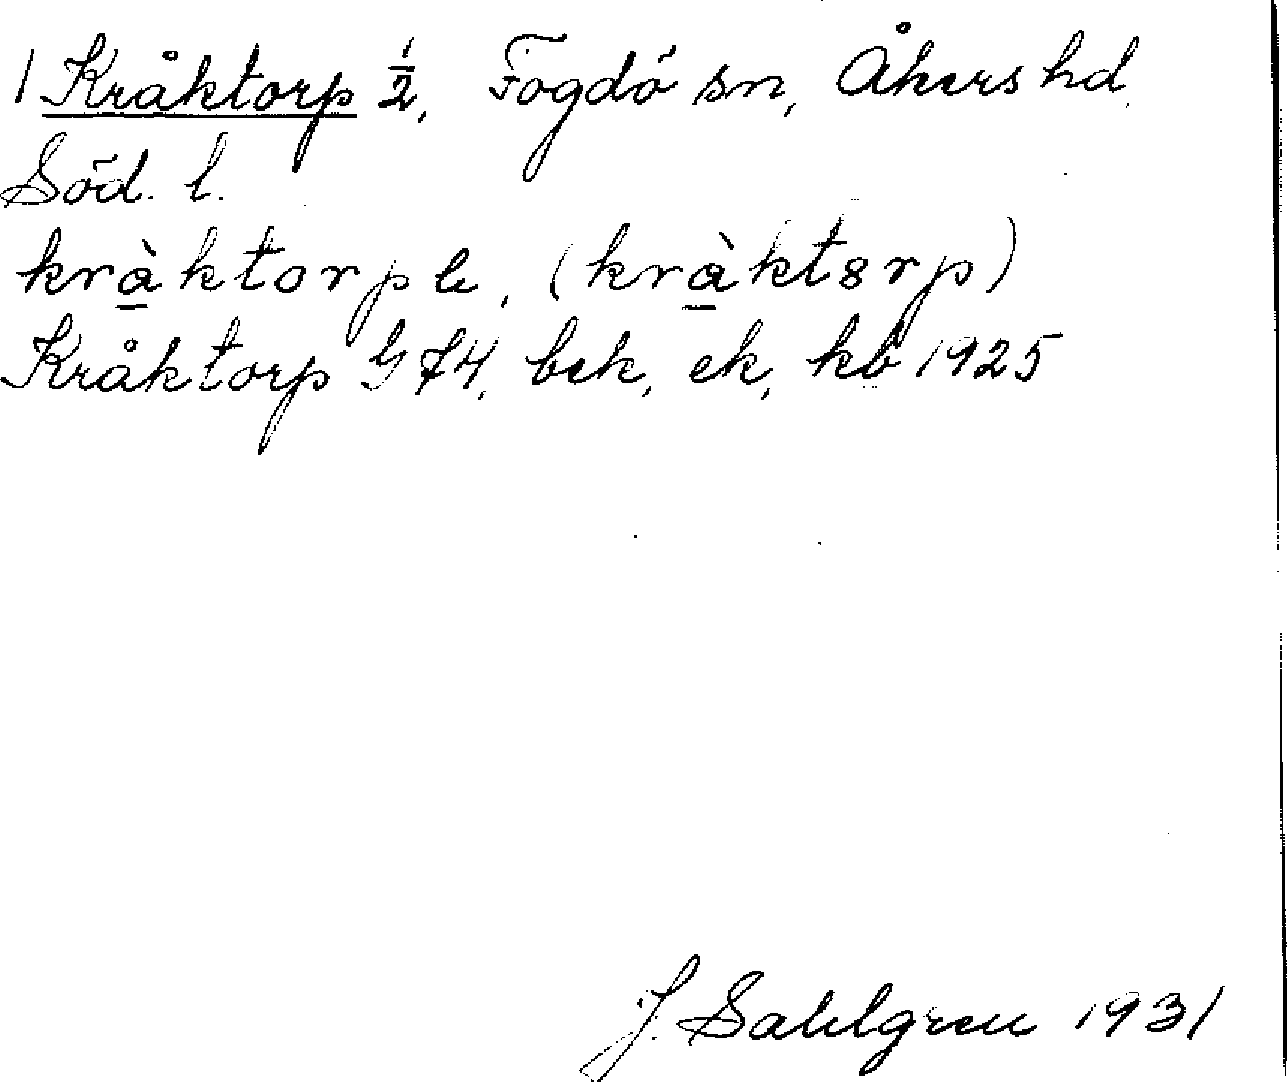 1 Kråktorp ½, Fogdö sn, Åkers hd
Söd. l.
kràktorp b, (kràktɜrp)
Kråktorp G 74, bek, ek, kb 1925
J. Sahlgren 1931